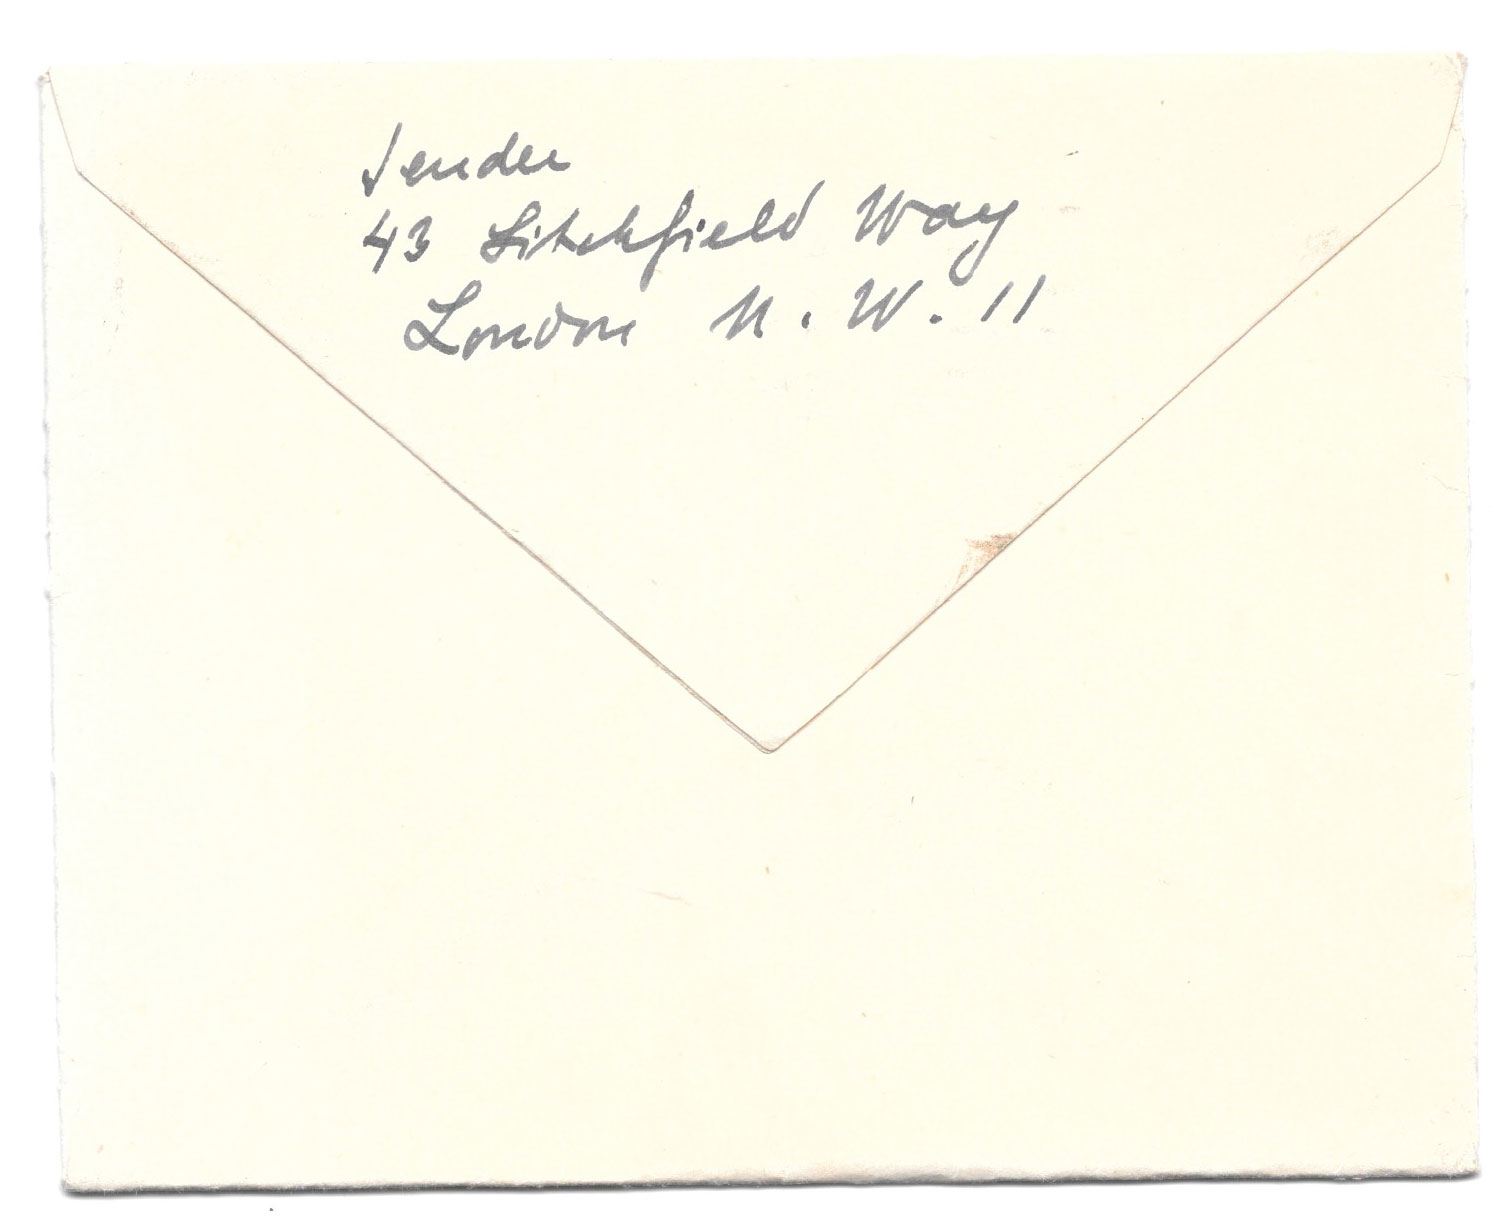 Sender
43 Litchfield Way
London N.W.11